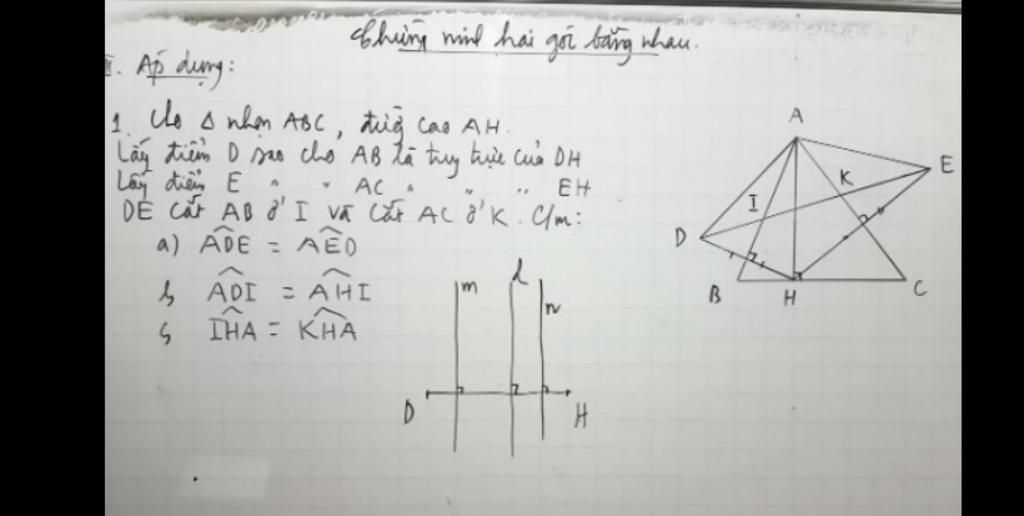 Chứng minh hai góc bằng nhau.
II. Áp dụng:
1. Cho Δ nhọn ABC, đường cao AH.
Lấy điểm D sao cho AB là trung trực của DH
Lấy điểm E " " AC " " " EH
DE cắt AB ở I và cắt AC ở K. C/m:
a) ADE = AED
b) ADI = AHI
c) IHA = KHA
A
E
K
I
D
B
H
C
m
d
n
D
H